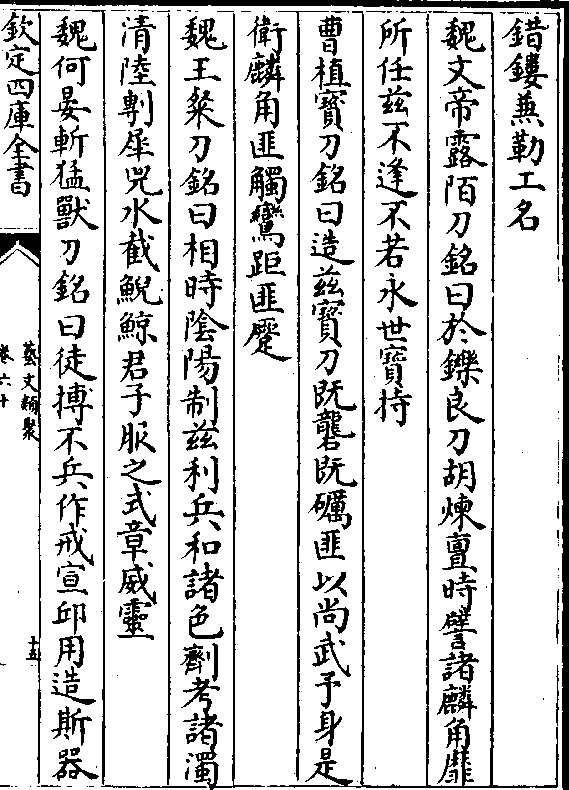 錯鏤兼勒工名
魏文帝露陌刀銘曰於鑠良刀胡煉亶時譬諸麟角靡
所任茲不逢不若永世寳持
曹植寳刀銘曰造茲寳刀既礱既礪匪以尚武予身是
衛麟角匪觸鸞距匪蹷
魏王粲刀銘曰相時隂陽制茲利兵和諸色劑考諸濁
清陸剸犀兕水截鯢鯨君子服之式章威靈
魏何晏斬猛獸刀銘曰徒搏不兵作戒宣邱用造斯器
欽定四庫全書
藝文類聚
卷六十
十五